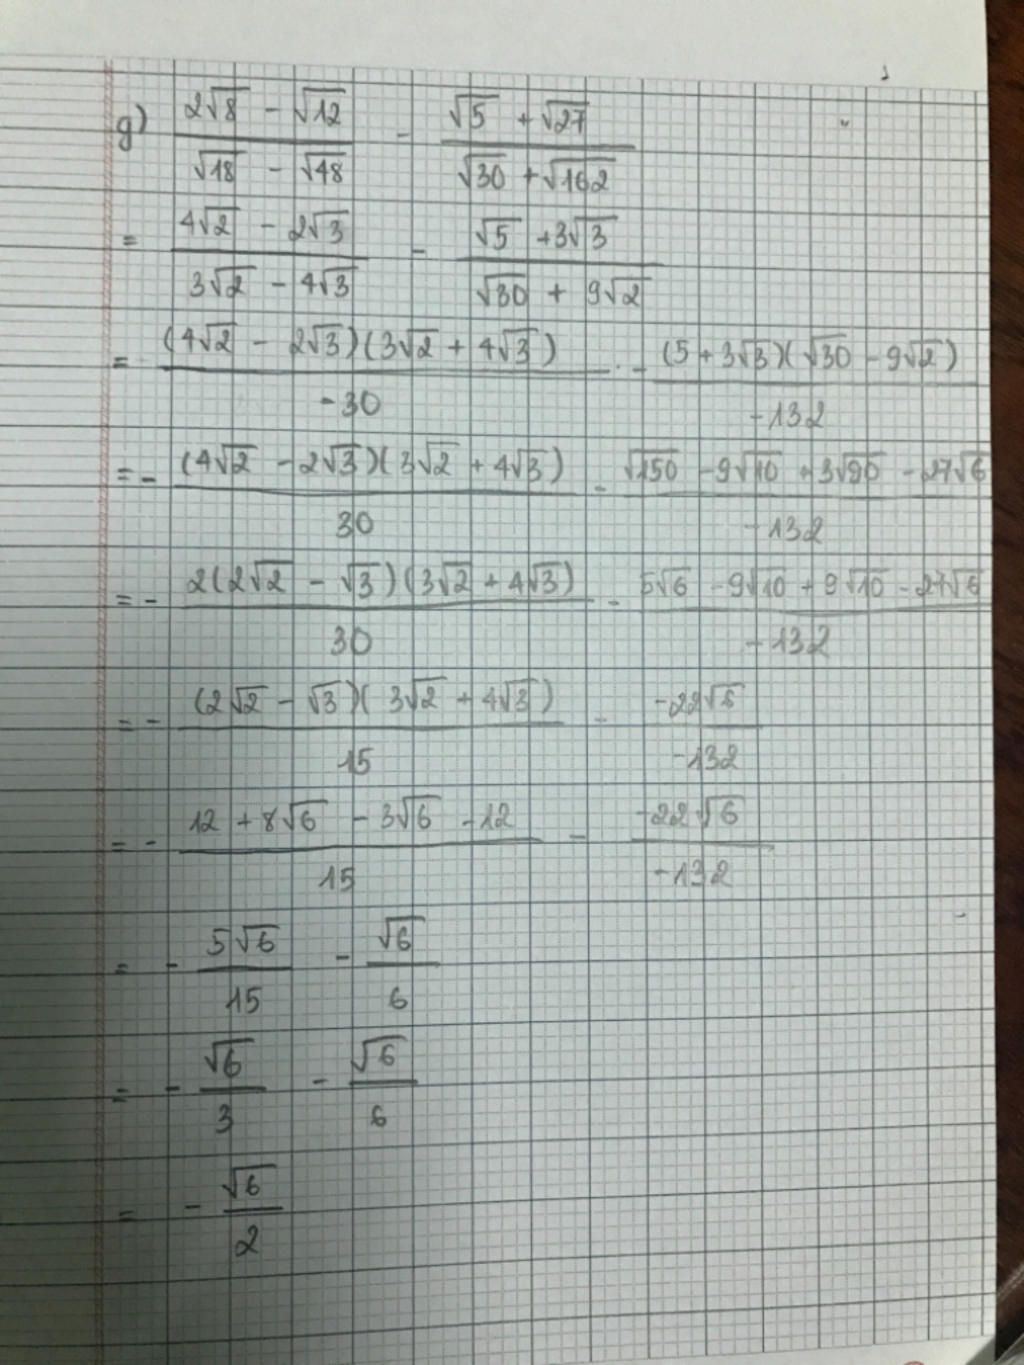 g) (2√8 - √12)/(√18 - √48) - (√5 + √27)/(√30 + √162)
= (4√2 - 2√3)/(3√2 - 4√3) - (√5 + 3√3)/(√30 + 9√2)
= (4√2 - 2√3)(3√2 + 4√3)/-30 - (5 + 3√3)(√30 - 9√2)/-132
= - (4√2 - 2√3)(3√2 + 4√3)/30 - (√150 - 9√10 + 3√90 - 27√6)/-132
= - 2(2√2 - √3)(3√2 + 4√3)/30 - (5√6 - 9√10 + 9√10 - 27√6)/-132
= - (2√2 - √3)(3√2 + 4√3)/15 - (-22√6)/-132
= - (12 + 8√6 - 3√6 - 12)/15 - (-22√6)/-132
= - 5√6/15 - √6/6
= - √6/3 - √6/6
= - √6/2